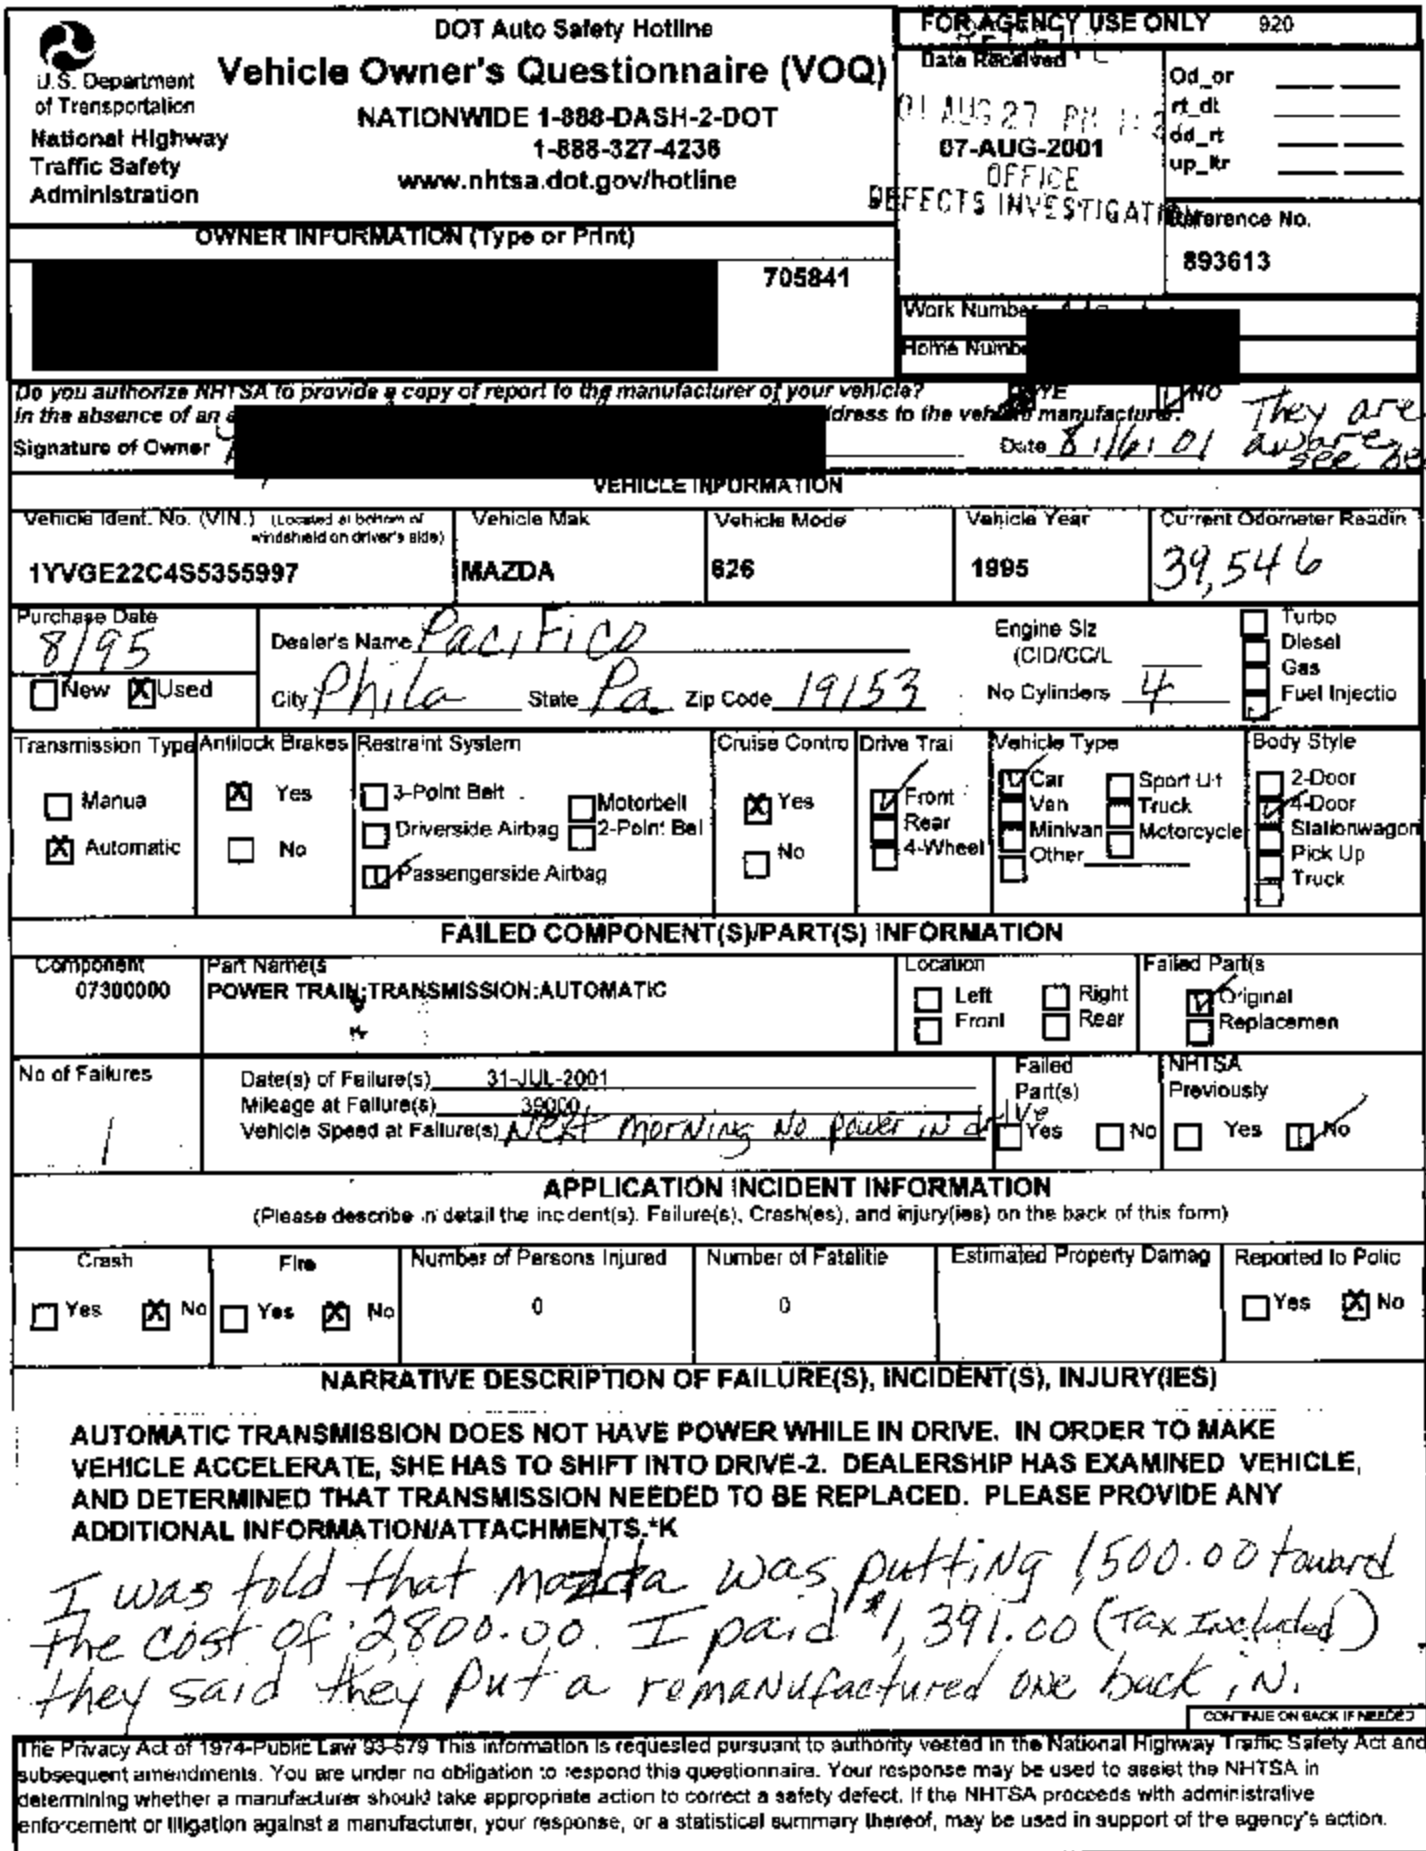 DOT Auto Safety Hotline
Vehicle Owner's Questionnaire (VOQ)
NATIONWIDE 1-888-DASH-2-DOT
1-888-327-4236
www.nhtsa.dot.gov/hotline
U.S. Department
of Transportation
National Highway
Traffic Safety
Administration
FOR AGENCY USE ONLY 920
Date Received
01 AUG 27 PM
07-AUG-2001
OFFICE
DEFECTS INVESTIGATION
Od_or
rt_dt
od_rt
up_ltr
Reference No.
893613
OWNER INFORMATION (Type or Print)
705841
Work Number
Home Numbe
Do you authorize NHTSA to provide a copy of report to the manufacturer of your vehicle? YE NO
In the absence of an a dress to the vehicle manufacturer.
They are
aware
see be
Signature of Owner Date 8/16/01
VEHICLE INFORMATION
Vehicle Ident. No. (VIN.) (Located at bottom of
windshield on driver's side)
1YVGE22C4S5355997
Vehicle Mak
MAZDA
Vehicle Mode
626
Vehicle Year
1995
Current Odometer Readin
39,546
Purchase Date
8/95
New X Used
Dealer's Name Pacifico
City Phila State Pa. Zip Code 19153
Engine Siz
(CID/CC/L
No Cylinders 4
Turbo
Diesel
Gas
Fuel Injectio
Transmission Type
Manua
X Automatic
Antilock Brakes
X Yes
No
Restraint System
3-Point Belt
Motorbelt
Driverside Airbag
2-Point Bel
Passengerside Airbag
Cruise Contro
X Yes
No
Drive Trai
Front
Rear
4-Wheel
Vehicle Type
Car
Van
Minivan
Other
Sport Ut
Truck
Motorcycle
Body Style
2-Door
4-Door
Stationwagon
Pick Up
Truck
FAILED COMPONENT(S)/PART(S) INFORMATION
Component
07300000
Part Name(s
POWER TRAIN:TRANSMISSION:AUTOMATIC
Location
Left Right
Front Rear
Failed Part(s
Original
Replacemen
No of Failures
1
Date(s) of Failure(s) 31-JUL-2001
Mileage at Failure(s) 39000
Vehicle Speed at Failure(s) Next morning no power in drive
Failed
Part(s)
Yes No
NHTSA
Previously
Yes No
APPLICATION INCIDENT INFORMATION
(Please describe in detail the incident(s). Failure(s), Crash(es), and injury(ies) on the back of this form)
Crash
Yes X No
Fire
Yes X No
Number of Persons Injured
0
Number of Fatalitie
0
Estimated Property Damag
Reported to Polic
Yes X No
NARRATIVE DESCRIPTION OF FAILURE(S), INCIDENT(S), INJURY(IES)
AUTOMATIC TRANSMISSION DOES NOT HAVE POWER WHILE IN DRIVE. IN ORDER TO MAKE
VEHICLE ACCELERATE, SHE HAS TO SHIFT INTO DRIVE-2. DEALERSHIP HAS EXAMINED VEHICLE,
AND DETERMINED THAT TRANSMISSION NEEDED TO BE REPLACED. PLEASE PROVIDE ANY
ADDITIONAL INFORMATION/ATTACHMENTS.*K
I was told that Mazda was putting 1,500.00 toward
the cost of 2800.00. I paid $1,391.00 (Tax Included)
they said they put a remanufactured one back in.
CONTINUE ON BACK IF NEEDED
The Privacy Act of 1974-Public Law 93-579 This information is requested pursuant to authority vested in the National Highway Traffic Safety Act and
subsequent amendments. You are under no obligation to respond this questionnaire. Your response may be used to assist the NHTSA in
determining whether a manufacturer should take appropriate action to correct a safety defect. If the NHTSA proceeds with administrative
enforcement or litigation against a manufacturer, your response, or a statistical summary thereof, may be used in support of the agency's action.